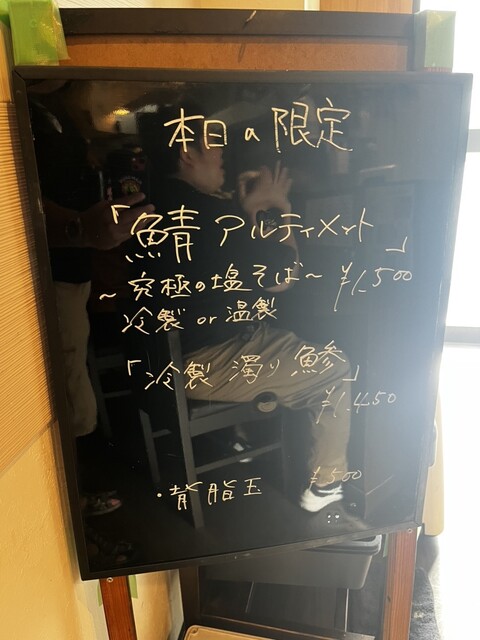 本日の限定
「鯖 アルティメット」
～究極の塩そば～ ¥1,500
冷製 or 温製
「冷製 濁り鯵」
¥1,450
・背脂玉 ¥500